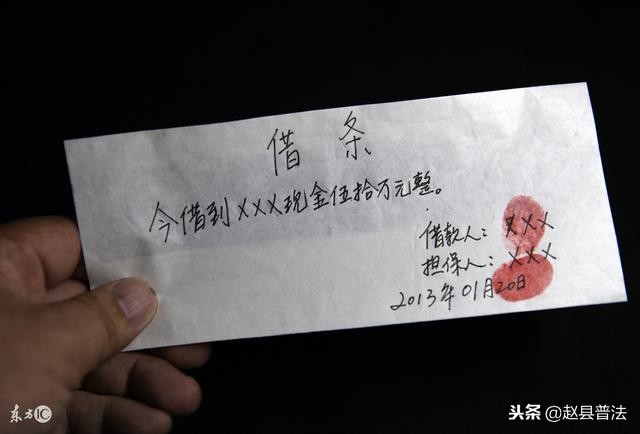 借条
今借到XXX现金伍拾万元整。
借款人：XXX
担保人：XXX
2013年01月20日
东方IC
头条 @赵县普法